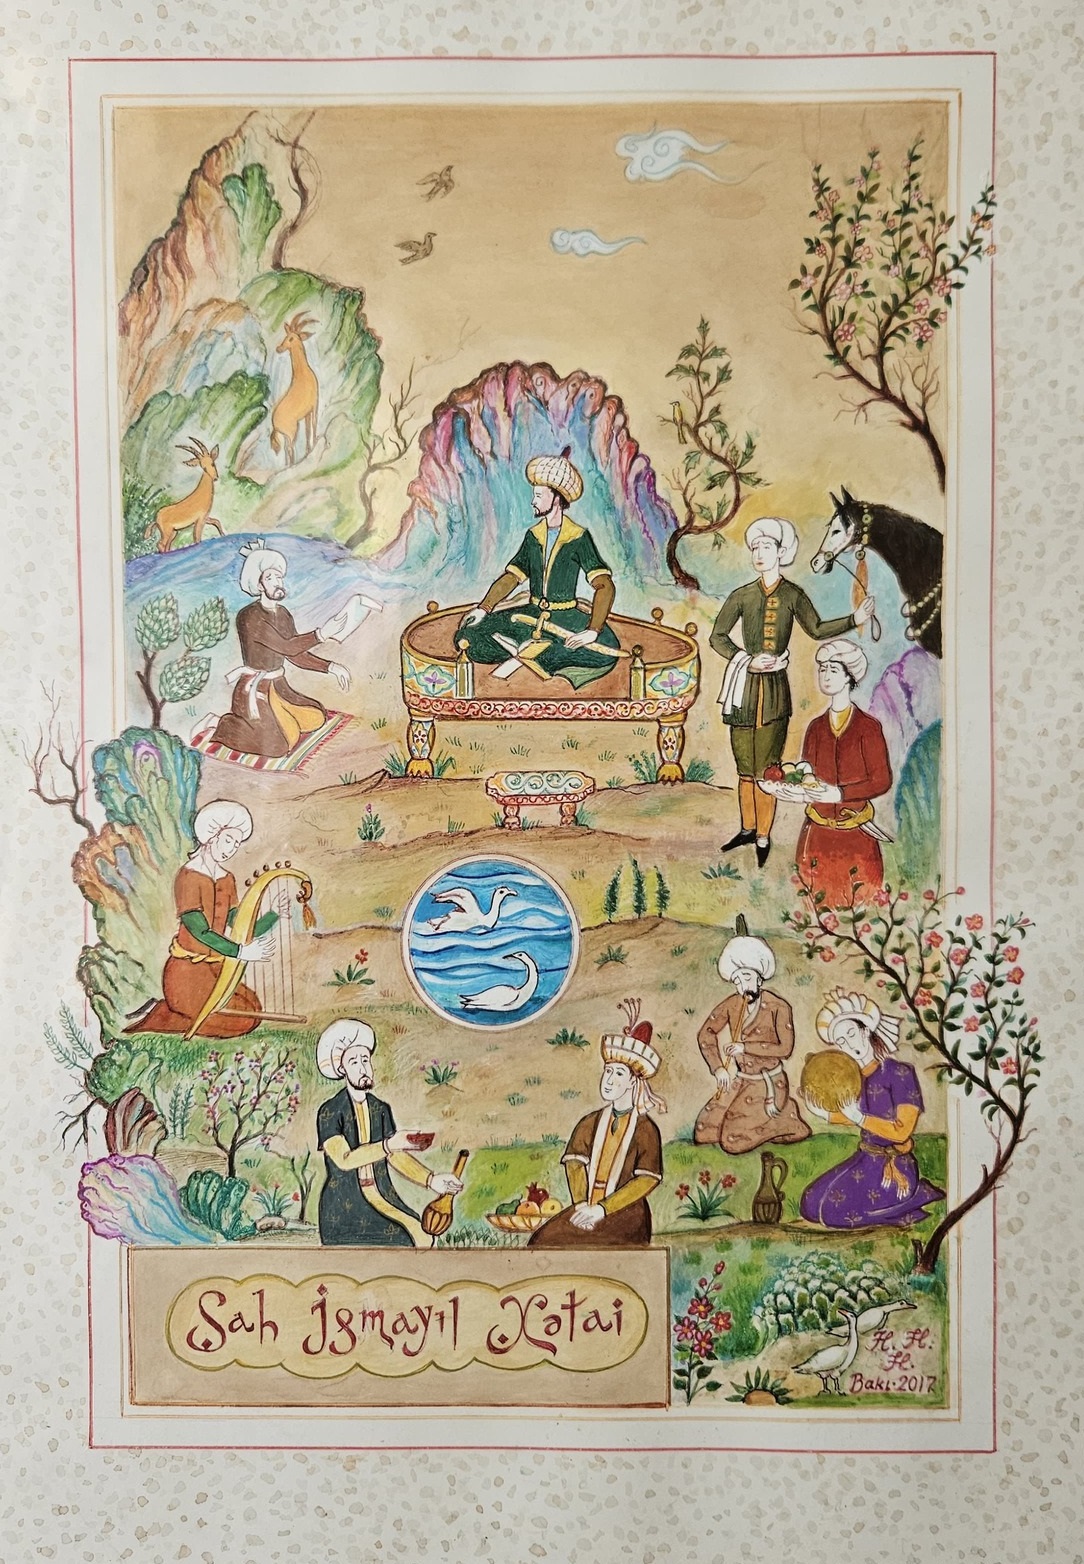 Şah İsmayıl Xətai
H. H.
H.
Bakı·2017